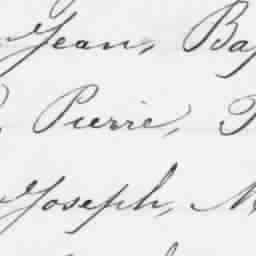 Jean, Ba
Pierre,
Joseph, M